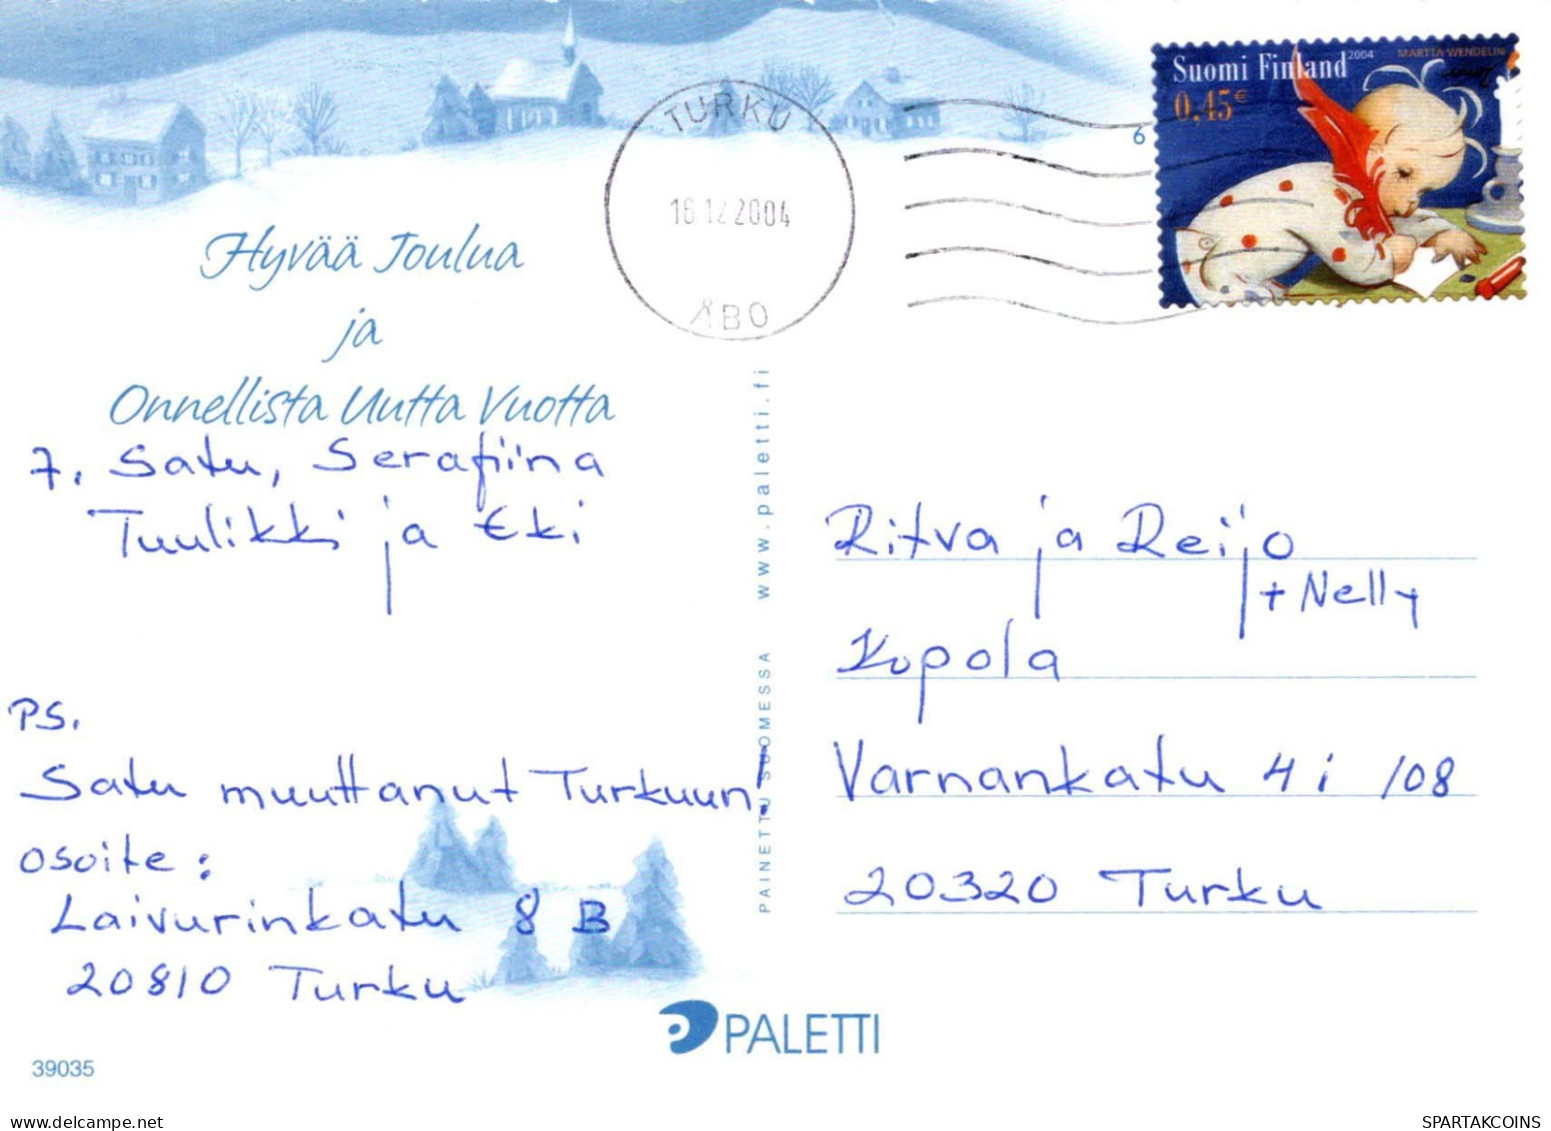 Suomi Finland 2004 MARTTA WENDELIN
0,45€
6
TURKU
16.12.2004
ÅBO
Hyvää Joulua
ja
Onnellista Uutta Vuotta
T. Satu, Serafiina
Tuulikki ja Eki
PS.
Satu muuttanut Turkuun!
osoite:
Laivurinkatu 8 B
20810 Turku
39035
www.paletti.fi
PAINETTU SUOMESSA
PALETTI
Ritva ja Reijo
+ Nelly
Kupola
Varnankatu 4 i 108
20320 Turku
SPARTAKCOINS